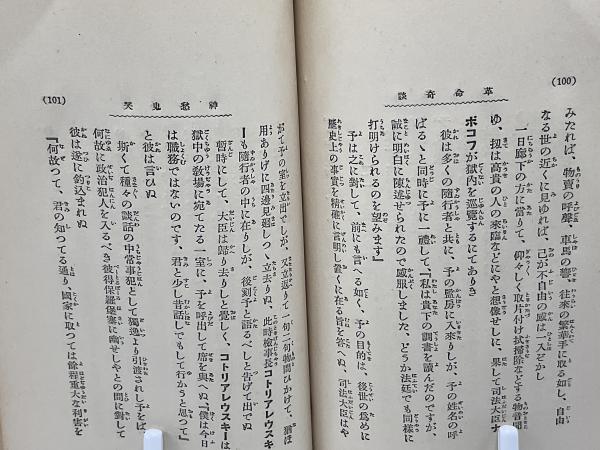 (100)
革命奇談
みたれば、物賣の呼聲、車馬の響、往來の繁華手に取る如し、自由
なる世の近くに見ゆれば、己が不自由の感は一入ぞかし
一日廊下の方に當りて、仰々しく取片付け拭掃除などする物音聞
ゆ、扨は高貴の人の來臨などにやと想像せしに、果して司法大臣ナ
ボコフが獄内を巡覽するにてありき
彼は多くの隨行者と共に、予の監房に入來りしが、予の姓名の呼
ばるゝと同時に予に一禮して『私は貴下の調書を讀んだのですが、
誠に明白に陳述せられたので感服しました、どうか法廷でも同樣に
打明けられるのを望みます』
予は之に對して、前にも言へる如く、予の目的は、後世の爲めに
歷史上の事實を精確に言明し置くに在る旨を答へぬ、司法大臣はや
(101)
神愁鬼哭
がて予の室を立出でしが、又立返りて一句二句物問ひかけて、猶ほ
用ありげに四邊見廻しつゝ立去りぬ、此時檢事長コトリアレウスキ
ーも隨行者の中に在りしが、後刻予と語るべしと告げて出でぬ
暫時にして、大臣は歸り去りしと覺しく、コトリアレウスキーは
獄中の敎場に宛てたる一室に、予を呼出して席を與へぬ『僕は今日
は職務ではないのです、君と少し昔話しでもして行かうと思つて』
と彼は言ひぬ
斯くて種々の談話の中常事犯として獨逸より引渡されし予をば、
何故に政治犯人を入るべき彼得保羅堡塞に幽せしやとの間に對して
彼は遂に釣込まれぬ
『何故つて、君の知つてる通り、國家に取つては餘程重大な利害を